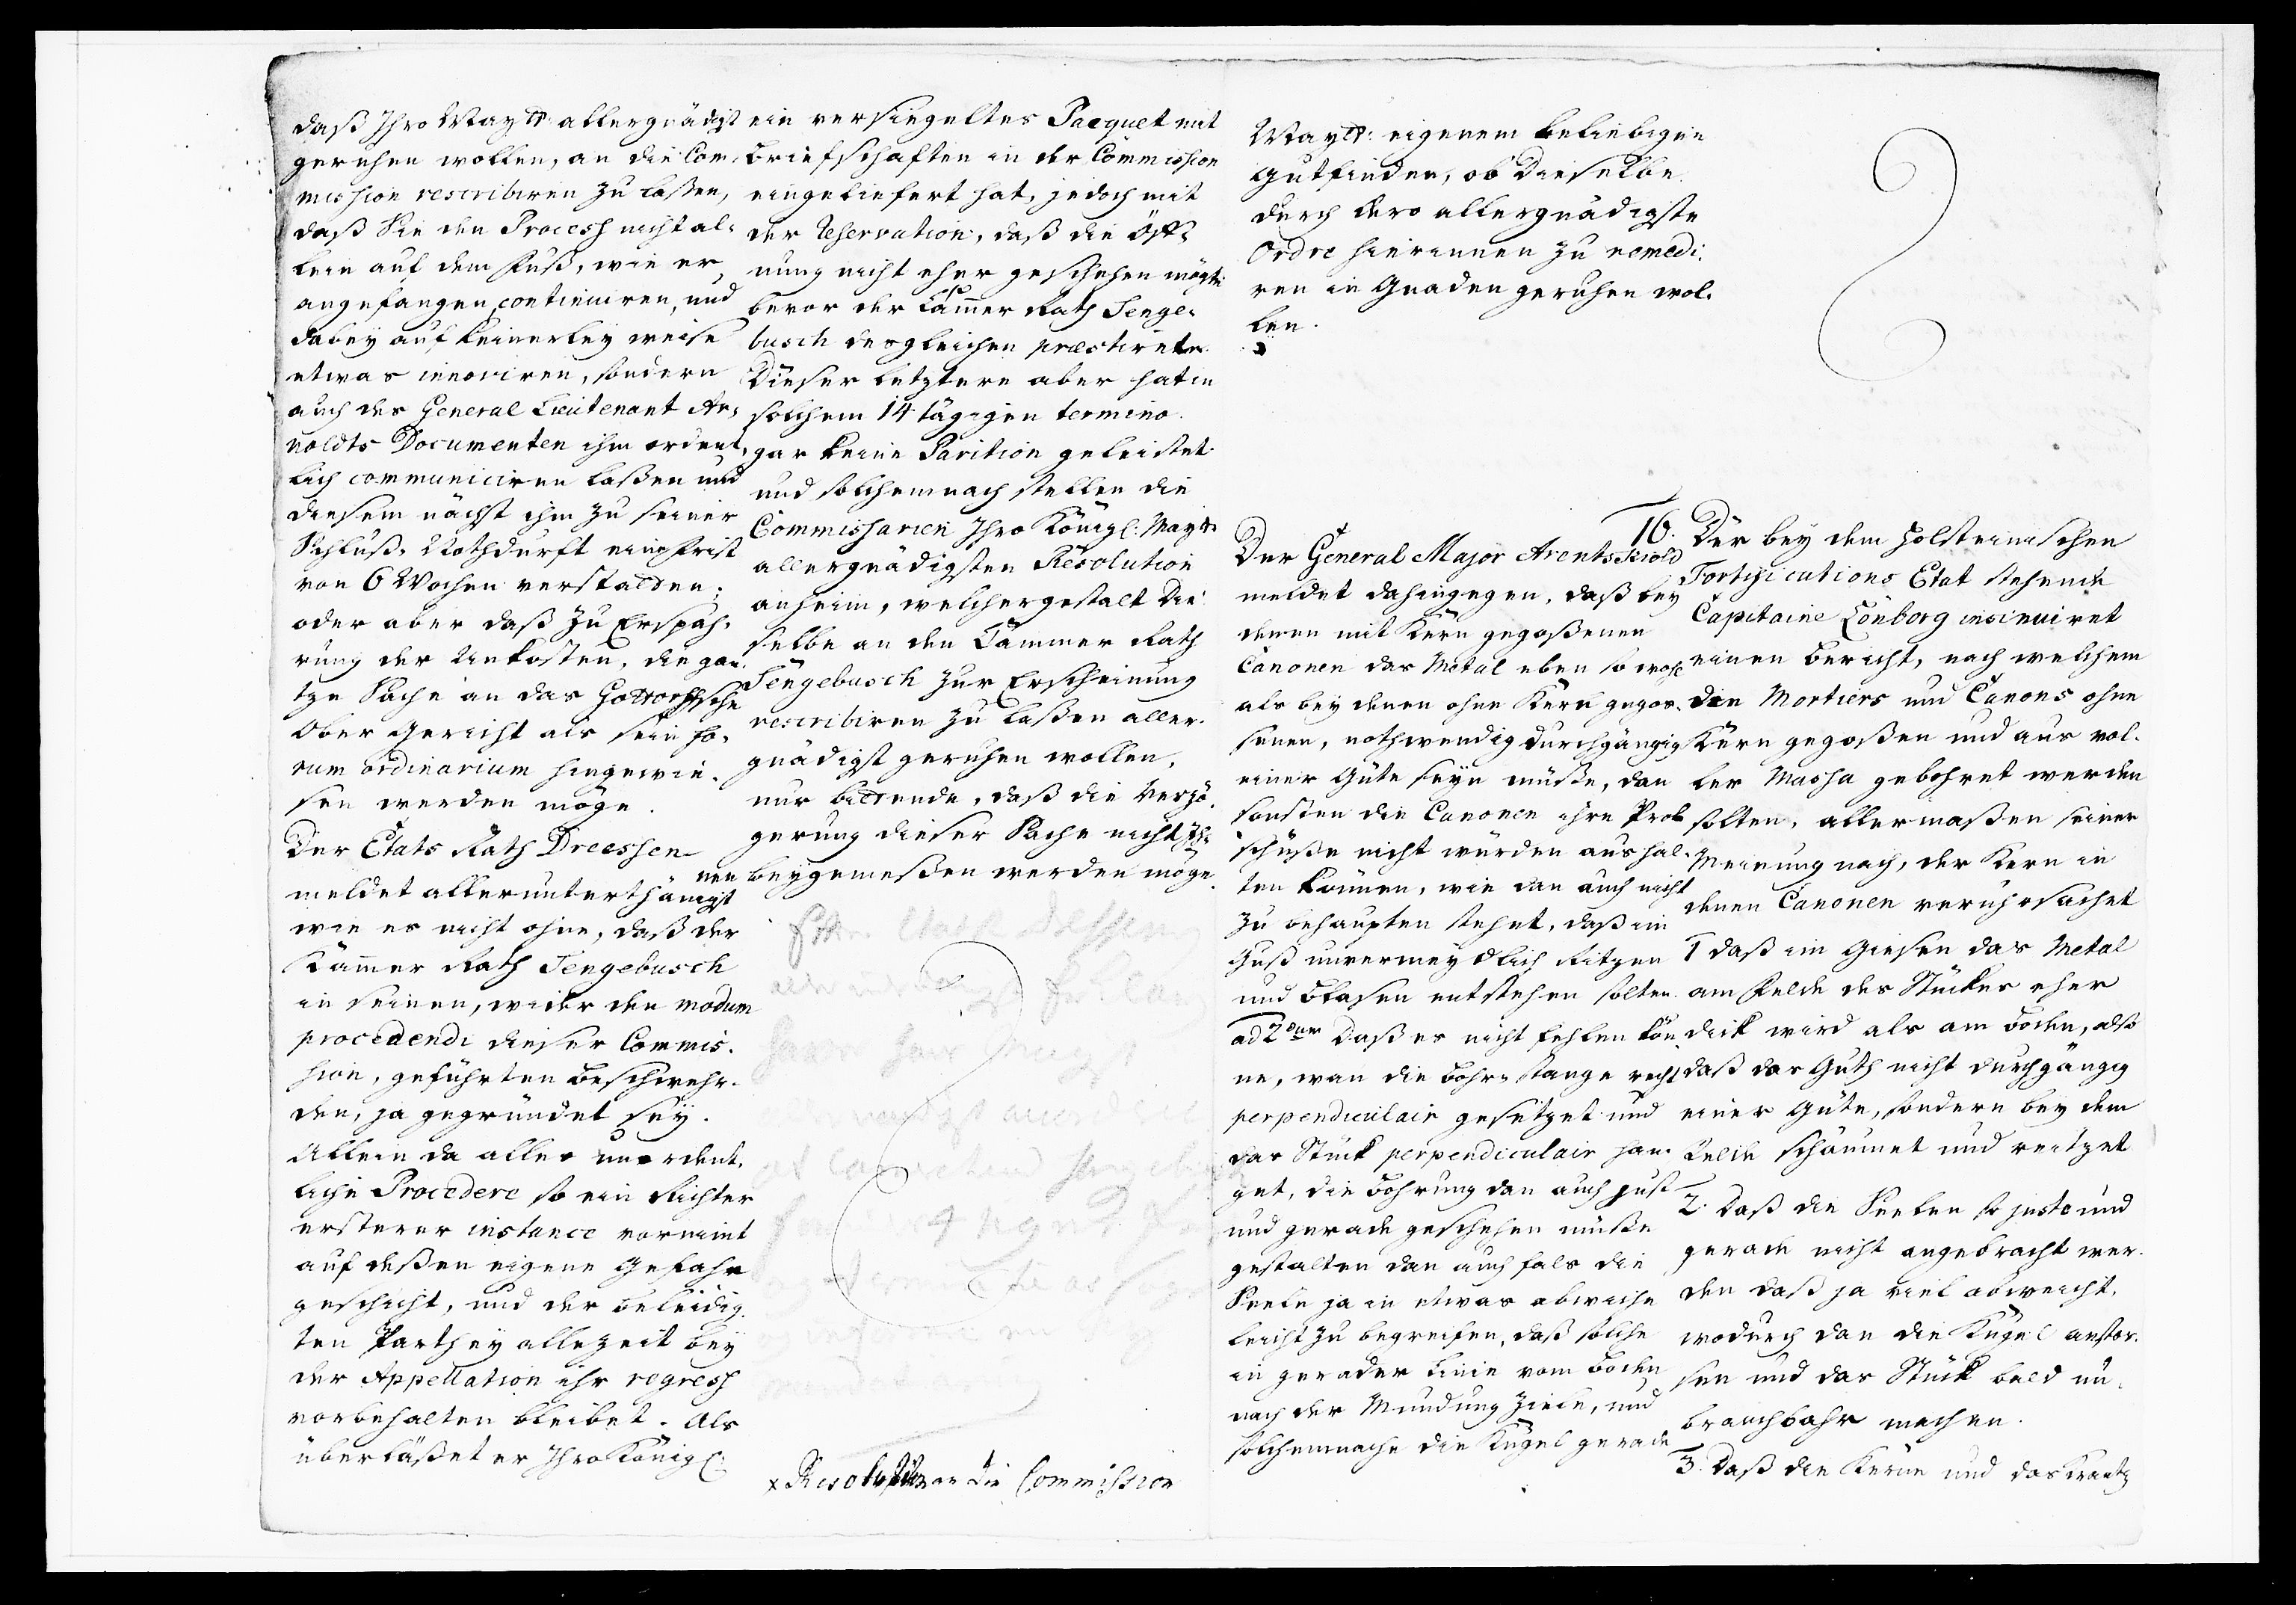 daß Ihro Maytt: allergnädigst
geruhen wollen, an die Com-
mission rescribiren zu laßen,
daß Sie den Process nicht al-
lein auf dem Fuß, wie er
angefangen, continuiren, und
dabey auf keinerley weise
etwas innoviren, sondern
auch des General Lieutenant Ar-
noldts Documenten ihm ordent-
lich communiciren laßen und
diesem nächst ihm zu seiner
Schluß-Nothdurft eine Frist
von 6 Wochen verstatten;
oder aber daß zu Erspah-
rung der Unkosten, die gan-
tze Sache an das Gottorffsche
Ober Gericht als sein fo-
rum ordinarium hingewie-
sen werden möge.
Der Etats Rath Dreessen
meldet allerunterthänigst
wie es nicht ohne, daß der
Kammer Rath Jengebusch
in seinen, wider den modum
procedendi dieser Commis-
sion, geführten Beschwehr-
den, ja gegründet sey.
Allein da alles unordent-
liche Procedere so ein Richter
ersterer instance vornimt
auf deßen eigene Gefahr
geschicht, und der beleidig-
ten Parthey allezeit bey
der Appellation ihr regress
vorbehalten bleibet. Als
überläßet er Ihro Königl:
ein versiegeltes Pacquet mit
Briefschaften in der Commission
eingeliefert hat, jedoch mit
der Reservation, daß die Öff-
nung nicht eher geschehen mögte
bevor der Cammer Rath Jenge-
busch desgleichen præstirete.
Dieser letztere aber hat in
solchem 14 tägigen termino
gar keine Parition geleistet
und solchemnach stellen die
Commissarien Ihro Königl: Maytt
allergnädigsten Resolution
anheim, welchergestalt Die-
selbe an den Cammer Rath
Jengebusch zur Erscheinung
rescribiren zu laßen aller-
gnädigst geruhen wollen,
nur bittende, daß die Verzö-
gerung dieser Sache nicht Ih-
nen beygemeßen werden möge.
x Resolution an die Commission
Maytt: eigenem beliebigen
Gutfinden, ob Dieselbe
durch dero allergnädigste
Ordre hierinnen zu remedi-
ren in Gnaden geruhen wol-
len.
16.
Der General Major Arentsskiold
meldet dahingegen, daß bey
denen mit Kern gegoßenen
Canonen das Metal eben so wohl
als bey denen ohne Kern gegos-
senen, nothwendig durchgängig
einer Güte seyn müße, dan
sonsten die Canonen ihre Prob
schüße nicht würden aushal-
ten können, wie dan auch nicht
zu behaupten stehet, daß im
Guß unvermeydlich Ritzen
und Blasen entstehen solten.
ad 2dum daß es nicht fehlen kön-
ne, wan die Bohr-Stange recht
perpendiculair gesetzet und
das Stück perpendiculair han-
get, die Bohrung dan auch just
und gerade geschehen müße
gestalten dan auch fals die
Seele ja in etwas abweiche
leicht zu begreifen, daß solche
in gerader Linie vom Boden
nach der Mundung ziele, und
solchemnach die Kugel gerade
Der bey dem Holsteinischen
Fortifications Etat stehende
Capitaine Lönborg insinuiret
einen Bericht, nach welchem
die Mortiers und Canons ohne
Kern gegoßen und aus vol-
ler Massa gebohret werden
solten, allermaßen seiner
Meinung nach, der Kern in
denen Canonen veruhrsachet
1 daß im Giesen das Metal
am Felde des Stückes eher
dick wird als am Boden, also
daß das Guth nicht durchgängig
einer Güte, sondern bey dem
Felde schäumet und reitzet
2. daß die Seelen so juste und
gerade nicht angebracht wer-
den daß ja viel abweicht,
wodurch dan die Kugel anstos-
sen und das Stück bald un-
brauchbahr machen.
3. daß die Kerne und das Krantz